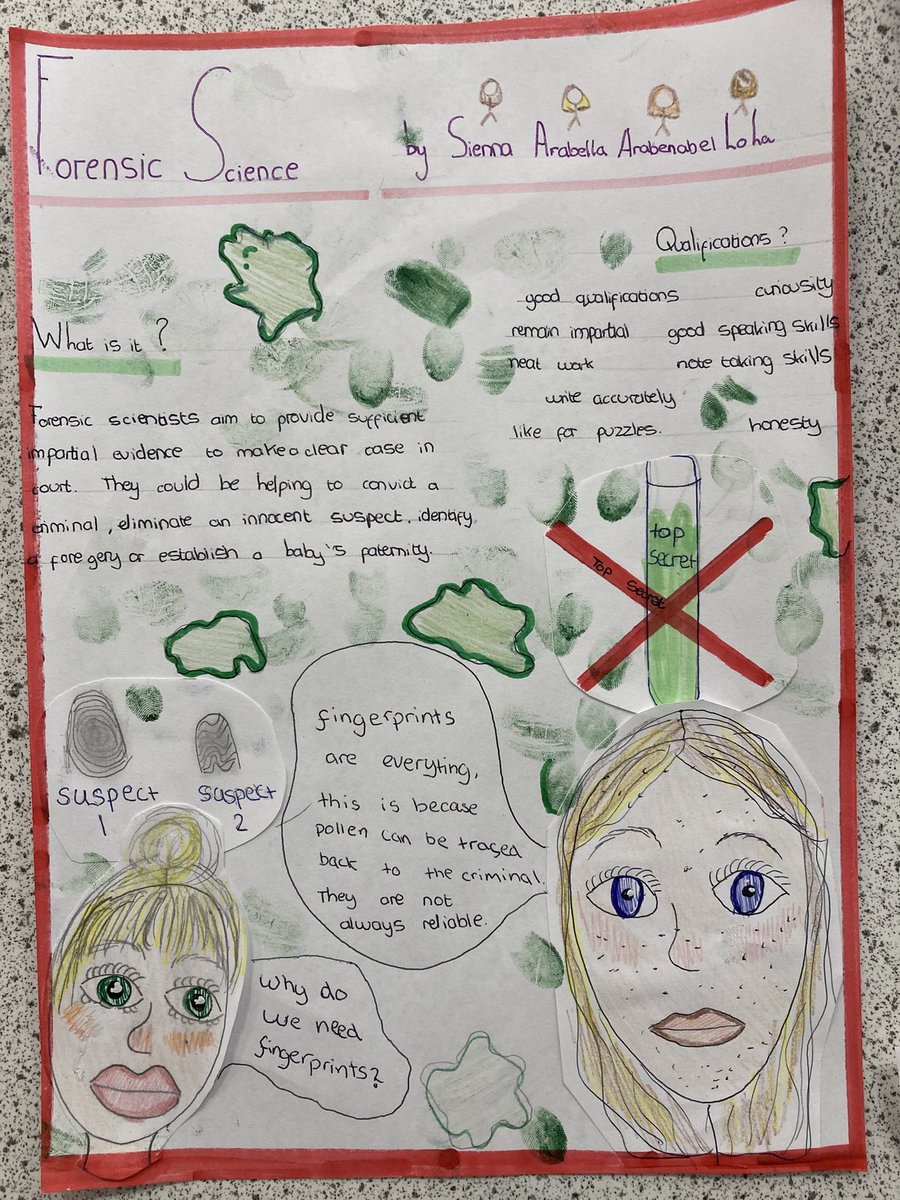 Forensic Science
by Sienna Arabella Arabenabel Loha
What is it ?
Forensic scientists aim to provide sufficient
impartial evidence to make a clear case in
court. They could be helping to convict a
criminal, eliminate an innocent suspect, identify
a foregery or establish a baby's paternity.
Qualifications ?
good qualifications curiousity
remain impartial good speaking skills
neat work note taking skills
write accurately
like for puzzles. honesty
top
secret
Top Secret
suspect
1
suspect
2
fingerprints
are everyting,
this is becase
pollen can be traced
back to the criminal.
They are not
always reliable.
Why do
we need
fingerprints?